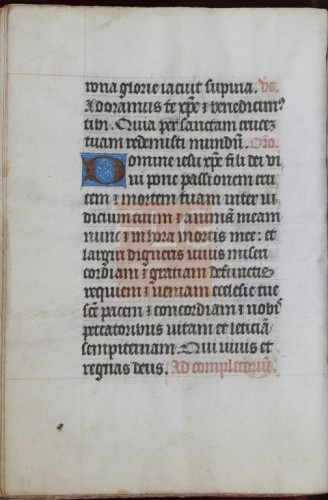 rona glorie iacuit supina. Vs.
Adoramus te xp̄e ⁊ benedicimꝰ
tibi. Quia per sanctam crucē
tuam redemisti mundū. Oro.
Domine iesu xp̄e fili dei vi
ui pone passionem cru
cem ⁊ mortem tuam inter iu
dicium tuum ⁊ animā meam
nunc ⁊ in hora mortis mee: et
largiri digneris viuis miseri
cordiam ⁊ gratiam defunctis
requiem ⁊ veniam ecclesie tue
scē pacem ⁊ concordiam ⁊ nobis
peccatoribus vitam et leticiā
sempiternam. Qui viuis et
regnas deus. Ad completoriū.